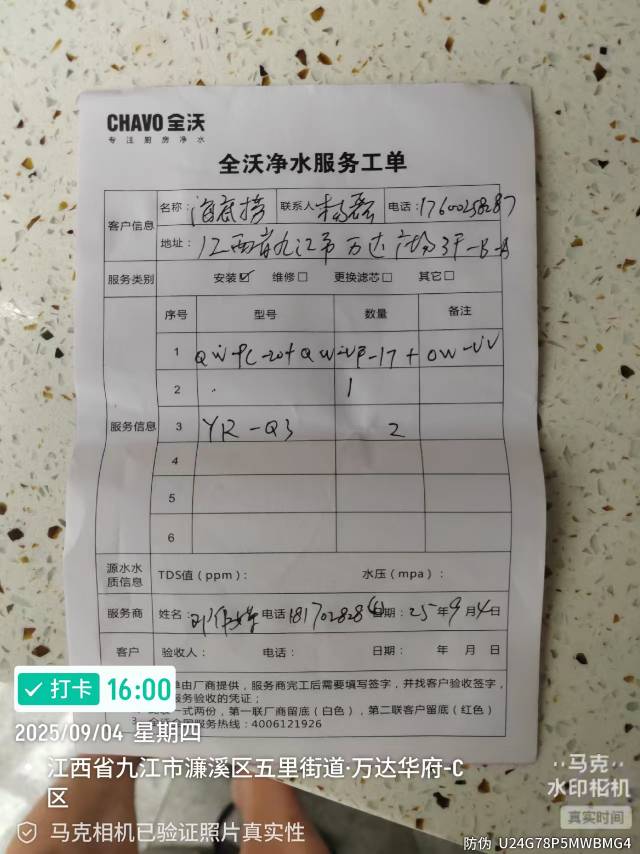 CHAVO 全沃
专注厨房净水
全沃净水服务工单
客户信息
名称: 海底捞 联系人 电话: 17600258287
地址: 江西省九江市万达广场3F-B-A
服务类别 安装☑ 维修☐ 更换滤芯☐ 其它☐
服务信息
序号 型号 数量 备注
1 QW-FC-20+QW-VF-17+OW-UV
2 1
3 YR-Q3 2
4
5
6
源水水质信息 TDS值(ppm): 水压(mpa):
服务商 姓名: 电话 日期: 25年9月4日
客户 验收人: 电话: 日期: 年 月 日
单由厂商提供,服务商完工后需要填写签字,并找客户验收签字,
服务验收的凭证;
一式两份,第一联厂商留底(白色),第二联客户留底(红色)
3、全沃全国服务热线:4006121926
打卡 16:00
2025/09/04 星期四
江西省九江市濂溪区五里街道·万达华府-C
区
马克相机已验证照片真实性
马克
水印相机
真实时间
防伪 U24G78P5MWBMG4